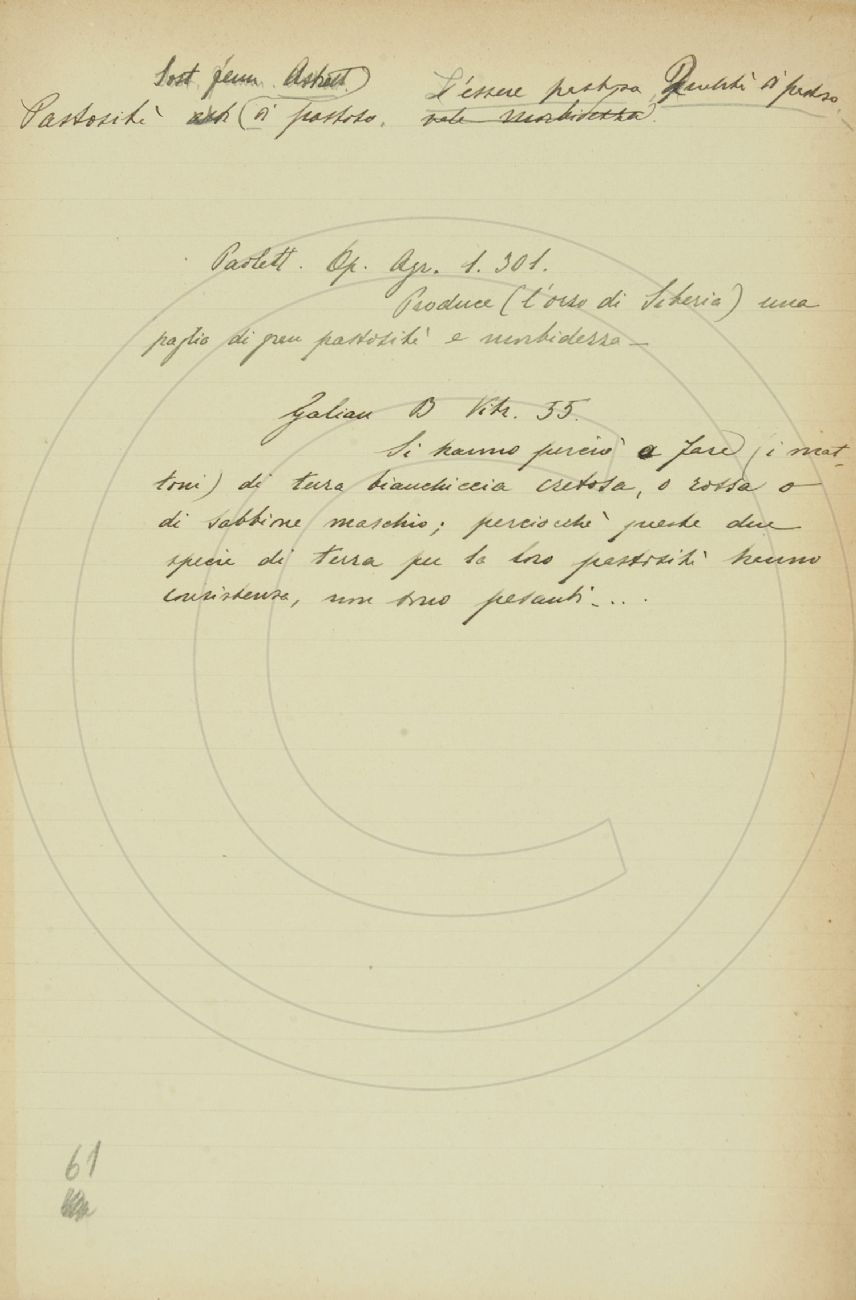 Sost. femm. Astratt.
L'essere pastoso Qualità di pastoso.
Pastosità astr. di pastoso. vale morbidezza.
Paolett. Op. Agr. 1. 301.
Produce (l'orzo di Siberia) una
paglia di gran pastosità e morbidezza —
Galian B Vitr. 55.
Si hanno perciò a fare (i mat-
toni) di terra bianchiccia cretosa, o rossa o
di sabbione maschio; perciocchè queste due
specie di terra per la loro pastosità hanno
consistenza, non sono pesanti...
61